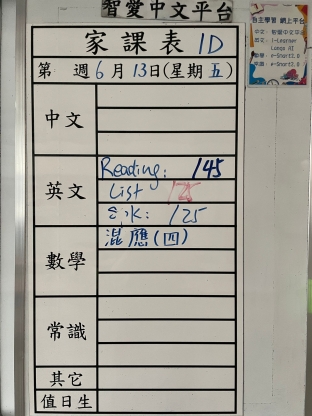 智愛中文平台
家課表 1D
第 週6月13日(星期五)
中文
英文
Reading: 145
List
: 125
數學
混應(四)
常識
其它
值日生
自主學習 網上平台
中文: 智愛中文平台
英文: i-Learner